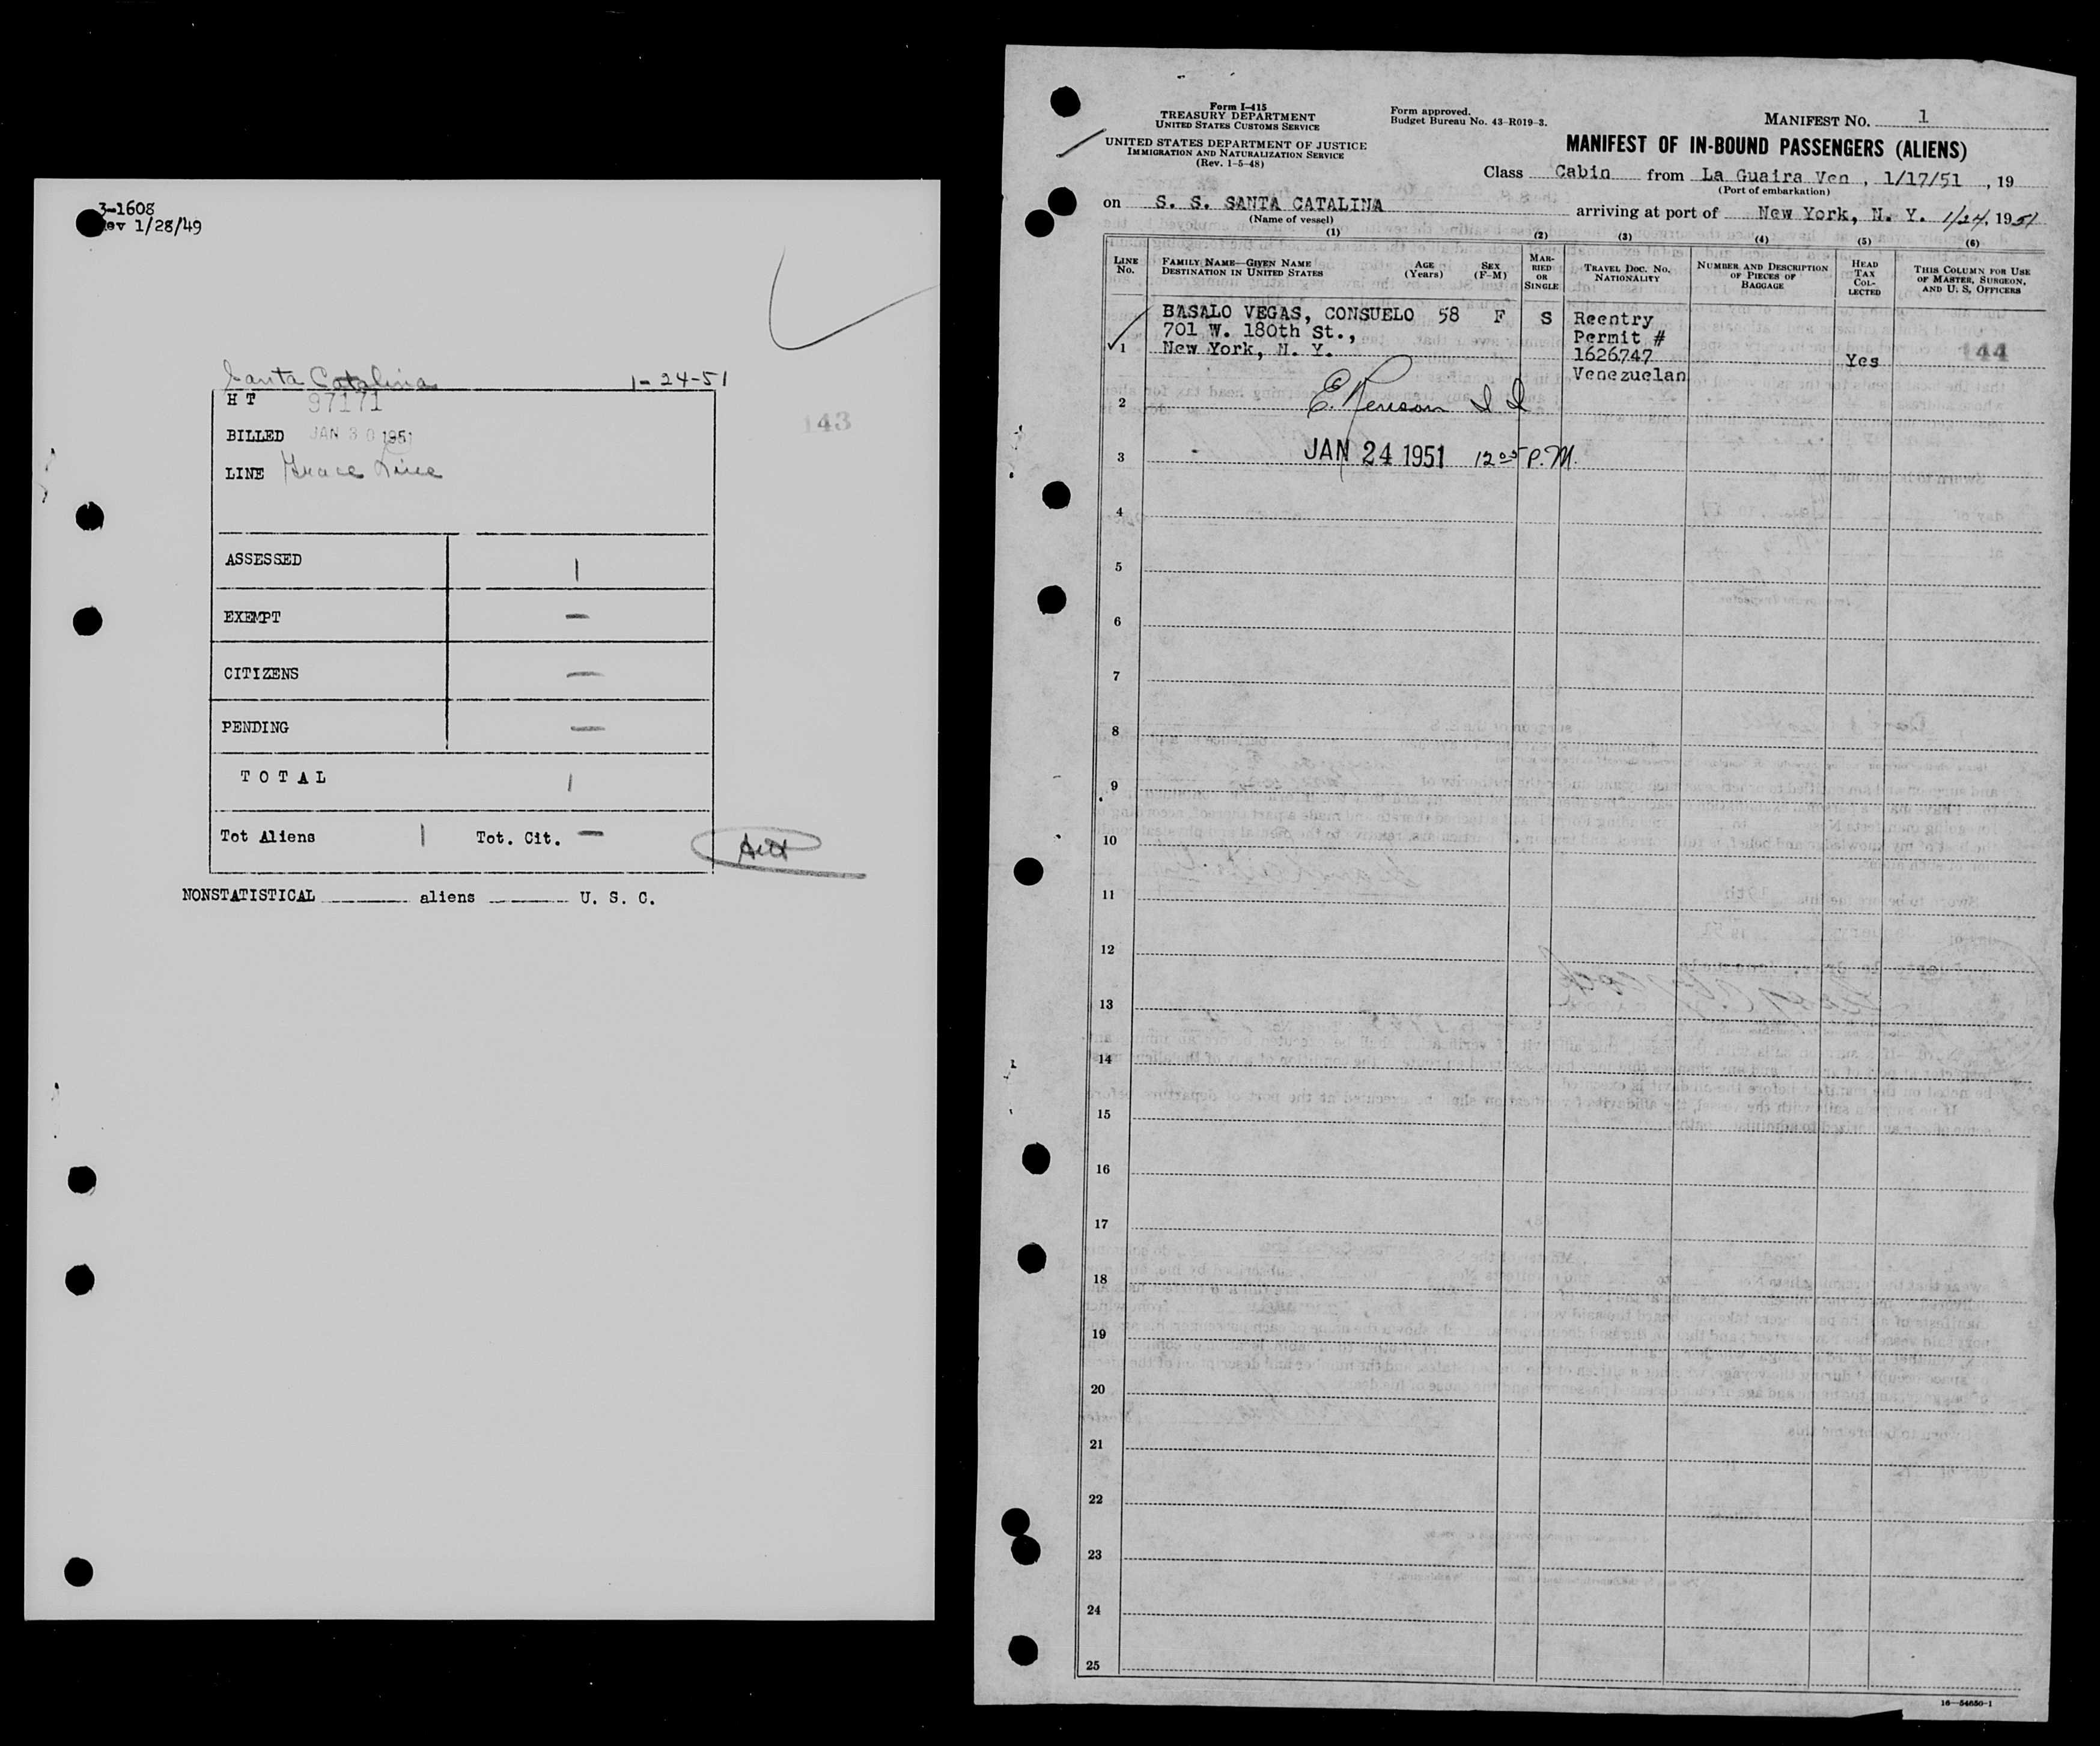 3-1608
Rev 1/28/49
Santa Catalina 1-24-51
H T 97171
BILLED JAN 30 1951
LINE Grace Line
143
ASSESSED 1
EXEMPT —
CITIZENS —
PENDING —
T O T A L 1
Tot Aliens 1 Tot. Cit. —
NONSTATISTICAL ______ aliens ______ U. S. C.
Form I-415
TREASURY DEPARTMENT
UNITED STATES CUSTOMS SERVICE
UNITED STATES DEPARTMENT OF JUSTICE
IMMIGRATION AND NATURALIZATION SERVICE
(Rev. 1-5-48)
Form approved.
Budget Bureau No. 43-R019-3.
MANIFEST No. 1
MANIFEST OF IN-BOUND PASSENGERS (ALIENS)
Class Cabin from La Guaira Ven , 1/17/51 , 19
(Port of embarkation)
on S. S. SANTA CATALINA arriving at port of New York, N. Y. 1/24, 1951
(Name of vessel)
(1) (2) (3) (4) (5) (6)
LINE No.
FAMILY NAME—GIVEN NAME
DESTINATION IN UNITED STATES
AGE (Years)
SEX (F-M)
MARRIED OR SINGLE
TRAVEL DOC. No.
NATIONALITY
NUMBER AND DESCRIPTION OF PIECES OF BAGGAGE
HEAD TAX COLLECTED
THIS COLUMN FOR USE OF MASTER, SURGEON, AND U. S. OFFICERS
BASALO VEGAS, CONSUELO 58 F S Reentry
701 W. 180th St., Permit #
1 New York, N. Y. 1626747 Yes 144
Venezuelan
2
3 JAN 24 1951 12 05 P.M.
4
5
6
7
8
9
10
11
12
13
14
15
16
17
18
19
20
21
22
23
24
25
16—54650-1